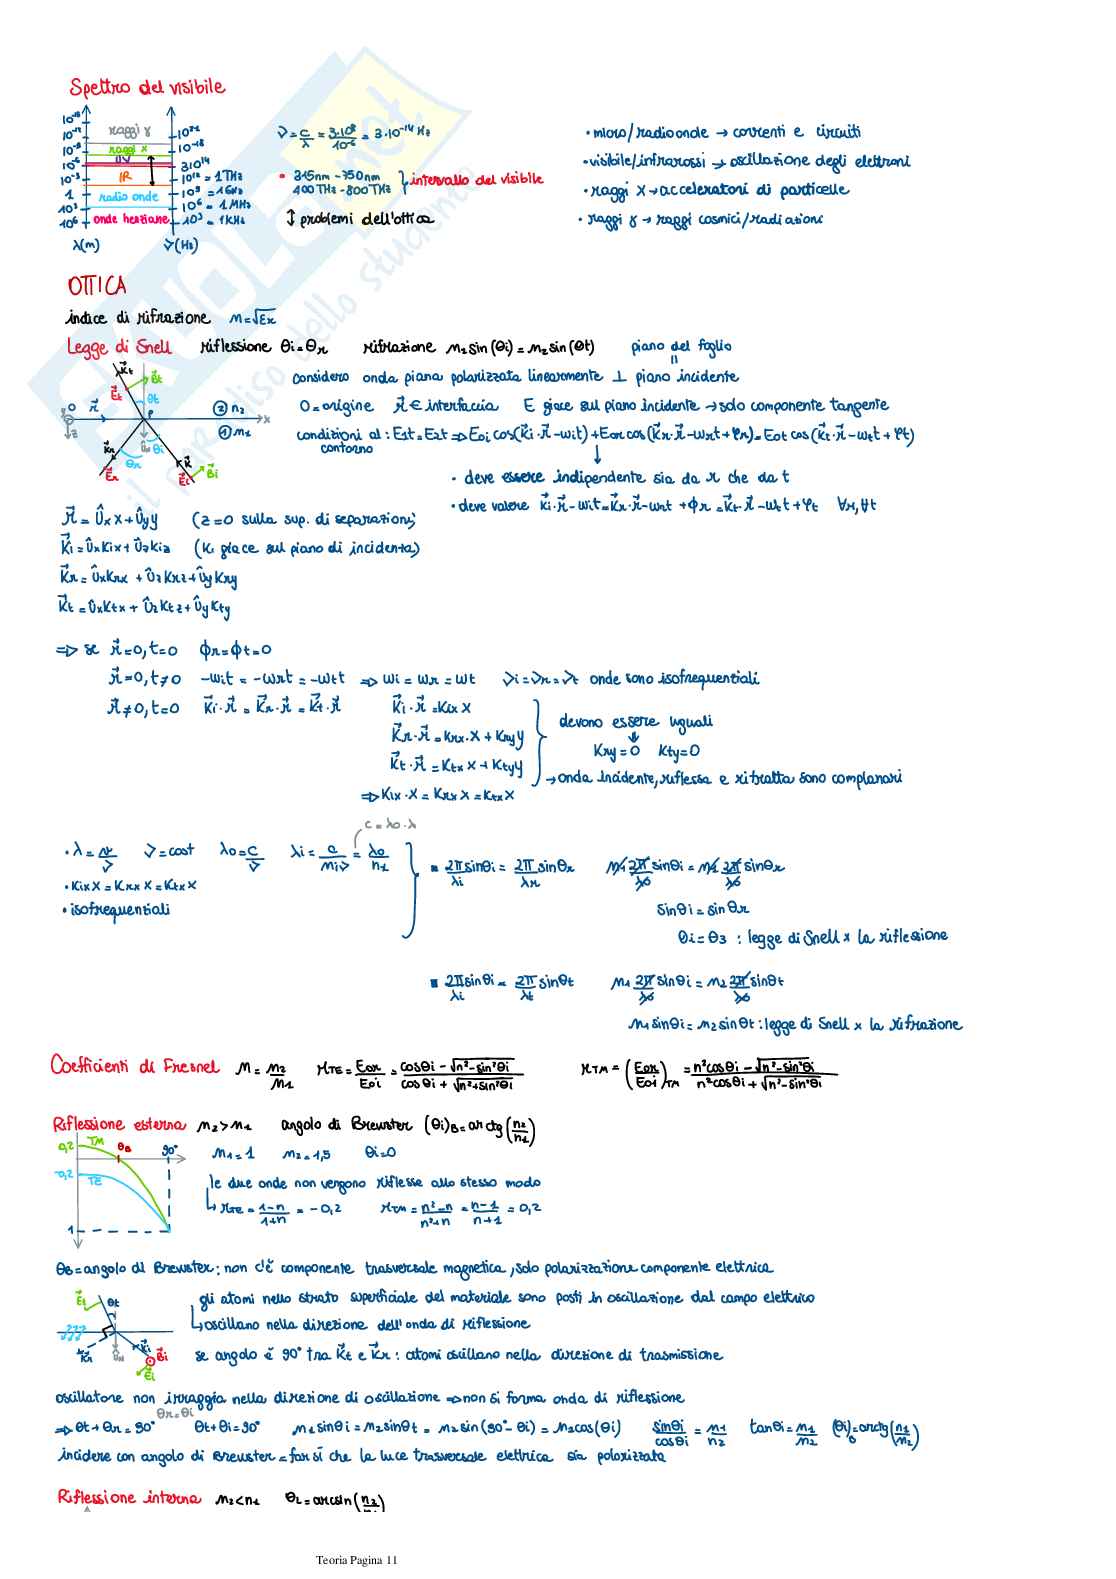 Spettro del visibile
10⁻¹⁸
10⁻¹² raggi γ 10²¹
10⁻⁸ raggi x 10⁻¹⁸
10⁻⁶ UV 3·10¹⁴
10⁻³ IR 10¹² = 1THz
1 radio onde 10⁹ = 1GHz
10³ 10⁶ = 1MHz
10⁶ onde herziane 10³ = 1KHz
λ(m) ν(Hz)
ν = c/λ = 3·10⁸/10⁻⁶ = 3·10⁻¹⁴ Hz
• 315nm - 750nm
400THz - 800THz } intervallo del visibile
↕ problemi dell'ottica
• micro/radioonde → correnti e circuiti
• visibile/infrarossi → oscillazione degli elettroni
• raggi X → acceleratori di particelle
• raggi γ → raggi cosmici/radiazioni
OTTICA
indice di rifrazione n=√εr
Legge di Snell riflessione θi=θr rifrazione n1 sin(θi)=n2 sin(θt) piano del foglio
considero onda piana polarizzata linearmente ⊥ piano incidente
O=origine r⃗ ∈ interfaccia E giace sul piano incidente → solo componente tangente
condizioni al contorno : E1t=E2t ⇒ Eoi cos(k⃗i·r⃗-ωit)+Eor cos(k⃗r·r⃗-ωrt+φr)=Eot cos(k⃗t·r⃗-ωtt+φt)
• deve essere indipendente sia da r che da t
• deve valere k⃗i·r⃗-ωit=k⃗r·r⃗-ωrt+φr=k⃗t·r⃗-ωtt+φt ∀r,∀t
k⃗t E⃗t B⃗t θt O r⃗ P x ② n2 ① n1 z ûn θi θr k⃗r E⃗r k⃗ E⃗i B⃗i
r⃗ = ûx x + ûy y (z=0 sulla sup. di separazione)
k⃗i = ûx kix + ûz kiz (ki giace sul piano di incidenza)
k⃗r = ûx krx + ûz krz + ûy kry
k⃗t = ûx ktx + ûz ktz + ûy kty
⇒ se r⃗=0, t=0 φr=φt=0
r⃗=0, t≠0 -ωit = -ωrt = -ωtt ⇒ ωi = ωr = ωt νi=νr=νt onde sono isofrequenziali
r⃗≠0, t=0 k⃗i·r⃗ = k⃗r·r⃗ = k⃗t·r⃗ k⃗i·r⃗ = kix x
k⃗r·r⃗ = krx·x + kry y
k⃗t·r⃗ = ktx x + kty y
devono essere uguali
kry=0 kty=0
→ onda incidente, riflessa e rifratta sono complanari
⇒ kix·x = krx x = ktx x
c = λ0·λ
• λ = v/ν ν=cost λ0=c/ν λi = c/(niν) = λ0/n1
• kix x = krx x = ktx x
• isofrequenziali
▪ 2π/λi sinθi = 2π/λr sinθr n1 2π/λ0 sinθi = n1 2π/λ0 sinθr
sinθi = sinθr
θi = θ3 : legge di Snell x la riflessione
▪ 2π/λi sinθi = 2π/λt sinθt n1 2π/λ0 sinθi = n2 2π/λ0 sinθt
n1 sinθi = n2 sinθt : legge di Snell x la rifrazione
Coefficienti di Fresnel n = n2/n1 rTE = Eor/Eoi = (cosθi - √(n²-sin²θi))/(cosθi + √(n²+sin²θi)) rTM = (Eor/Eoi)TM = (n²cosθi - √(n²-sin²θi))/(n²cosθi + √(n²-sin²θi))
Riflessione esterna n2>n1 angolo di Brewster (θi)B=arctg(n2/n1)
0,2 TM θB 90°
-0,2 TE
1
n1=1 n2=1,5 θi=0
le due onde non vengono riflesse allo stesso modo
↳ rTE = (1-n)/(1+n) = -0,2 rTM = (n²-n)/(n²+n) = (n-1)/(n+1) = 0,2
θB = angolo di Brewster: non c'è componente trasversale magnetica, solo polarizzazione componente elettrica
gli atomi nello strato superficiale del materiale sono posti in oscillazione dal campo elettrico
↳ oscillano nella direzione dell'onda di riflessione
se angolo è 90° tra k⃗t e k⃗r: atomi oscillano nella direzione di trasmissione
E⃗t θt k⃗r ûn k⃗i B⃗i E⃗i
oscillatore non irraggia nella direzione di oscillazione ⇒ non si forma onda di riflessione
θr=θi
⇒ θt+θr = 90° θt+θi=90° n1 sinθi = n2 sinθt = n2 sin(90°-θi) = n2 cos(θi) sinθi/cosθi = n1/n2 tanθi = n1/n2 (θi)B = arctg(n1/n2)
incidere con angolo di Brewster = far sì che la luce trasversale elettrica sia polarizzata
Riflessione interna n2<n1 θL = arcsin(n2/n1)
Teoria Pagina 11
SKUOLA.net
il paradiso dello studente